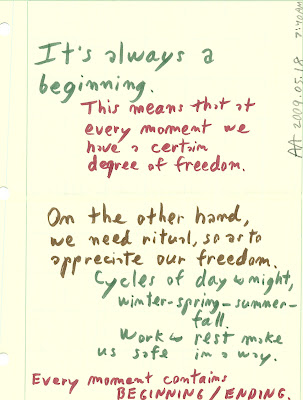 It's always a
beginning.
This means that at
every moment we
have a certain
degree of freedom.
On the other hand,
we need ritual, so as to
appreciate our freedom.
Cycles of day & night,
winter-spring-summer-
fall.
Work & rest make
us safe in a way.
Every moment contains
BEGINNING/ENDING.
AA 2009.05.18 7:40AM